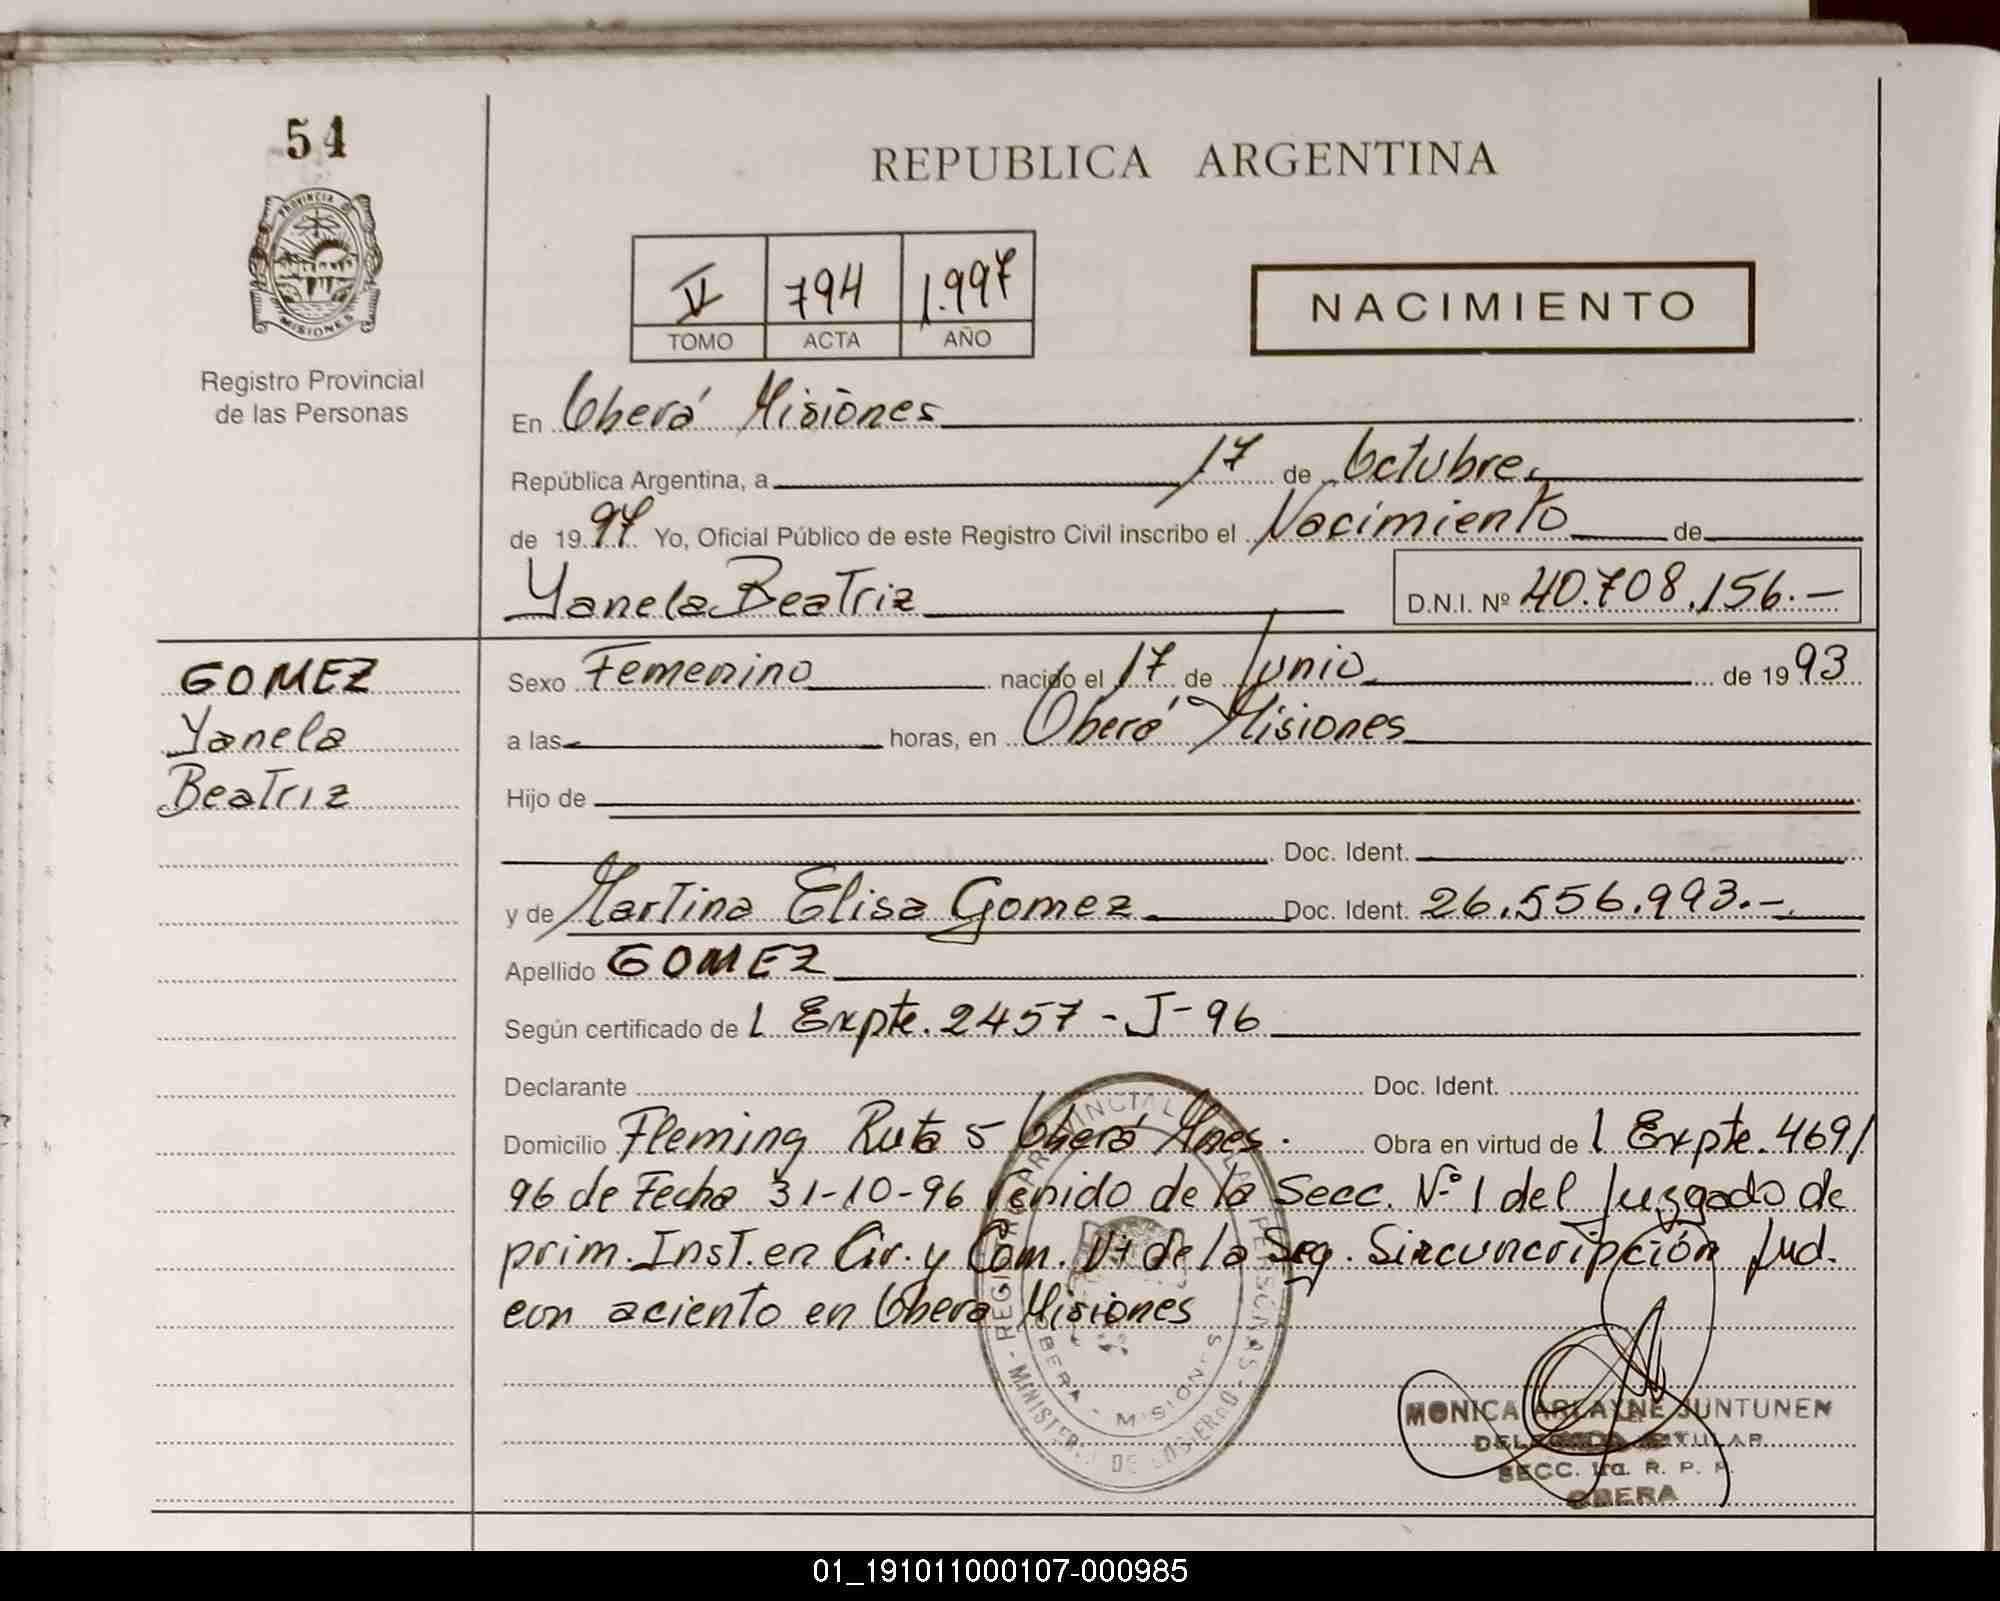 54
PROVINCIA DE
MISIONES
Registro Provincial
de las Personas
REPUBLICA ARGENTINA
V 794 1.997
TOMO ACTA AÑO
NACIMIENTO
En Oberá Misiones
República Argentina, a 17 de Octubre.
de 1997 Yo, Oficial Público de este Registro Civil inscribo el Nacimiento de
Yanela Beatriz D.N.I. Nº 40.708.156.-
GOMEZ
Yanela
Beatriz
Sexo Femenino nacido el 17 de Junio de 1993
a las horas, en Oberá Misiones
Hijo de
Doc. Ident.
y de Martina Elisa Gomez Doc. Ident. 26.556.993.-
Apellido GOMEZ
Según certificado de L Expte. 2457-J-96
Declarante Doc. Ident.
Domicilio Fleming Ruta 5 Oberá Mnes. Obra en virtud de l Expte. 469/
96 de Fecha 31-10-96 venido de la Secc. Nº 1 del Juzgado de
prim. Inst. en Civ. y Com. de la Seg. Sircuncripción Jud.
con aciento en Obera Misiones
OBERA - MISIONES
MONICA ARLAYNE JUNTUNEN
TITULAR
SECC. 1ra. R. P. P.
OBERA
01_191011000107-000985